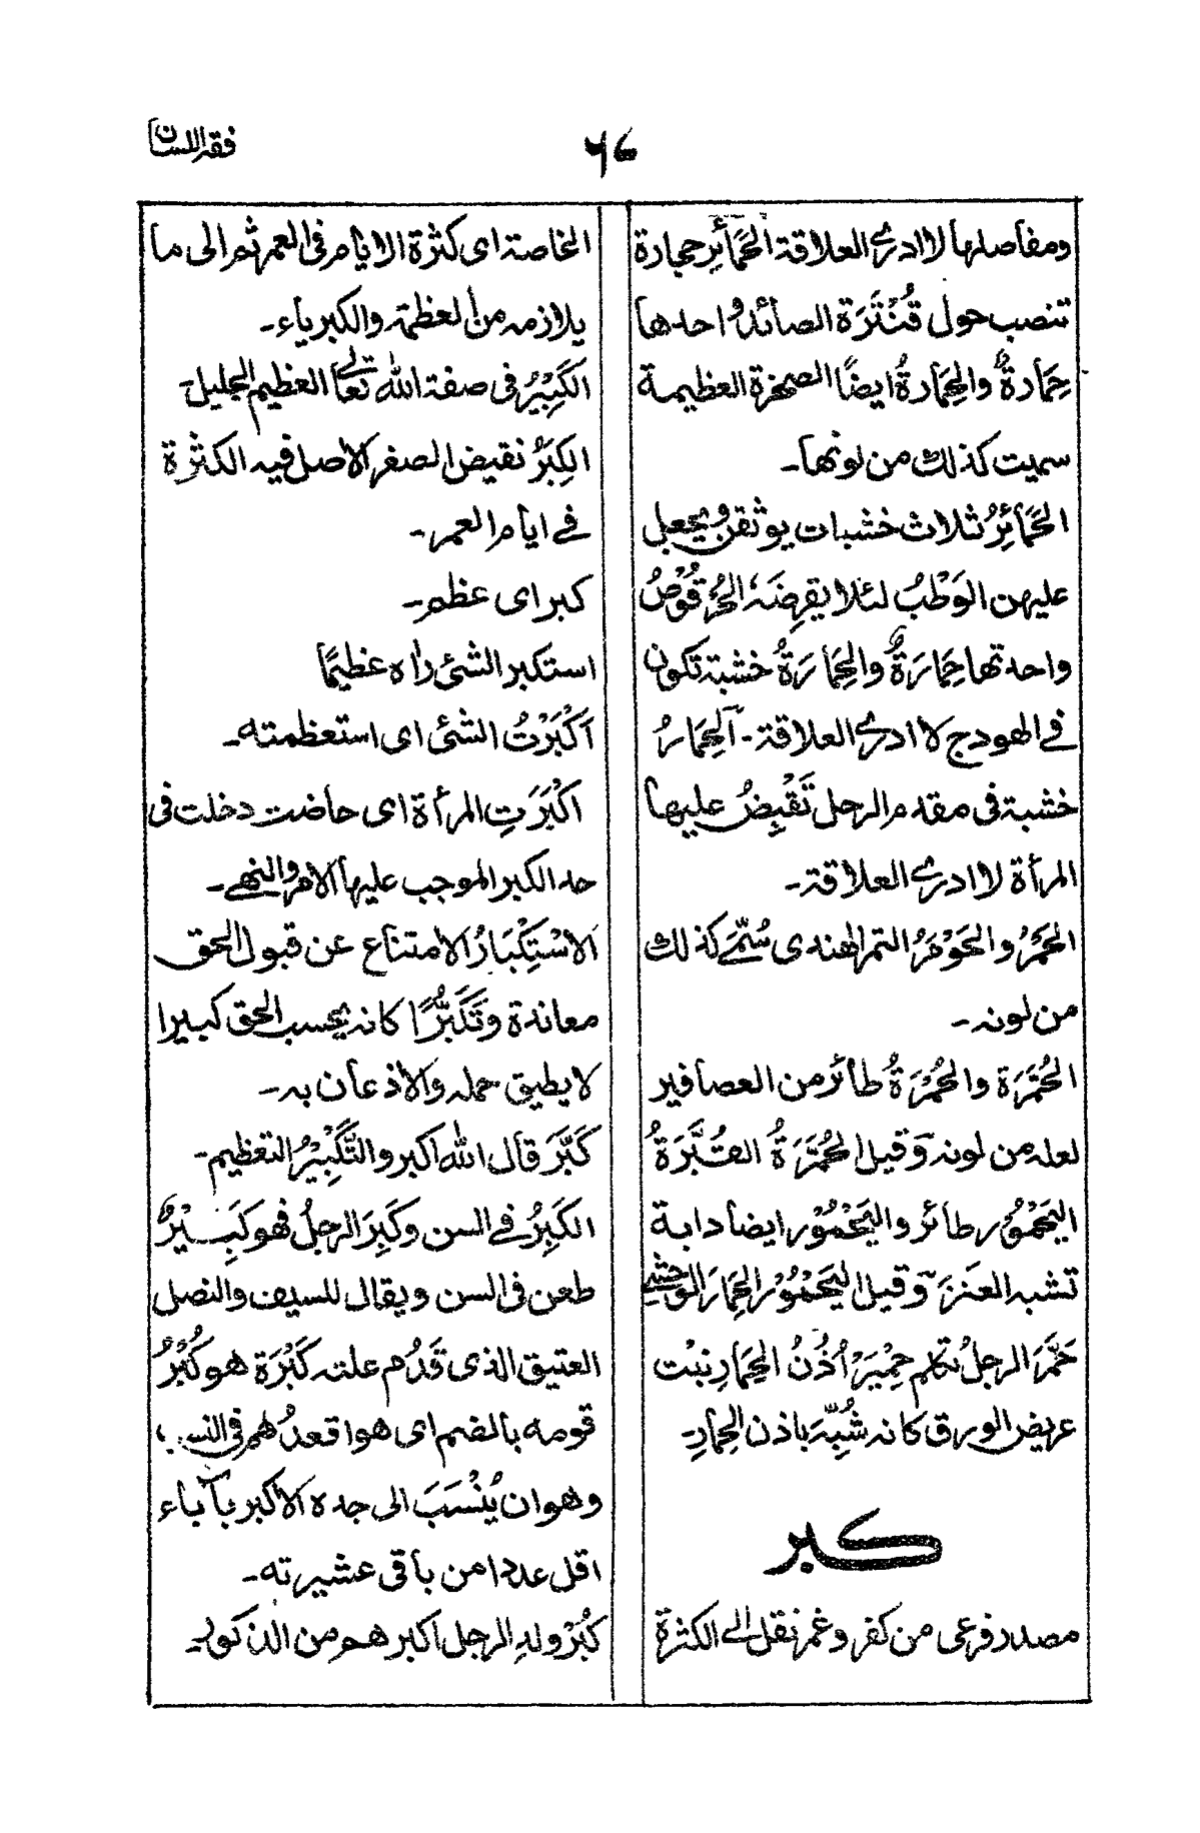 فقہ اللسان
٦٧
ومفاصلها لا ادرى العلاقة الحَمَائِر حجارة
تنصب حول قُتْرَة الصائد واحدها
حِمَارةٌ والحِمَارةُ ايضًا الصخرة العظيمة
سميت كذلك من لونها۔
الحَمَائِرُ ثلاث خشبات يوثقن ويجعل
عليهن الوَطْبُ لئلا يقرِضَهٗ الحُرْقُوْصُ
واحدتها حِمَارَةٌ والحِمَارَةُ خشبة تكون
فى الهودج لا ادرى العلاقة۔ اَلحِمَارُ
خشبة فى مقدم الرحل تَقْبِضُ عليها
المرأة لا ادرى العلاقة۔
الحُمَرُ والحَوْمَرُ التمر الهندى سُمِّىَ كذلك
من لونه۔
الحُمَّرَة والحُمْرَةُ طائر من العصافير
لعله من لونه وقيل الحُمَّرَةُ القُبَّرَةُ
اليَحْمُوْر طائر واليَحْمُوْر ايضا دابة
تشبه العنز وقيل اليَحْمُوْر الحِمَار الوحشى
حَمَّرَ الرجلُ تكلم حِمْيَرْ أُذُنُ الحِمَارِ نبْت
عريض الورق كانه شُبِّهَ باذن الحِمارِ۔
كبر
مصدر فرعى من كفر وغمر نقل الى الكثرة
الخاصة اى كثرة الايام فى العمر ثم الى ما
يلازمه من العظمة والكبرياء۔
الكَبِيْرُ فى صفة الله تعالى العظيم الجليل
الكِبَرُ نقيض الصغر الاصل فيه الكثرة
فى ايام العمر۔
كبر اى عظم۔
استكبر الشئ رأه عظيمًا
اَكْبَرْتُ الشئ اى استعظمته۔
اَكْبَرَتِ المرأة اى حاضت دخلت فى
حد الكبر الموجب عليها الامر والنهى۔
الاسْتِكْبَارُ الامتناع عن قبول الحق
معاندة وتَكَبُّرًا كانه يحسب الحق كبيرا
لا يطيق حمله والاذعان به۔
كَبَّرَ قال الله اكبر والتَّكْبِيْرُ التعظيم۔
الكَبِرُ فى السن وكَبِرَ الرجلُ فهو كَبِيْرٌ
طعن فى السن ويقال للسيف والنصل
العتيق الذى قَدُم علته كَبْرَة هو كُبْرُ
قومه بالضم اى هو اقعدُهم فى النسب
وهو ان يُنْسَبَ الى جده الاكبر بآباء
اقل عددا من باقى عشيرته۔
كُبْرُ ولدِ الرجل اكبرهم من الذكور۔